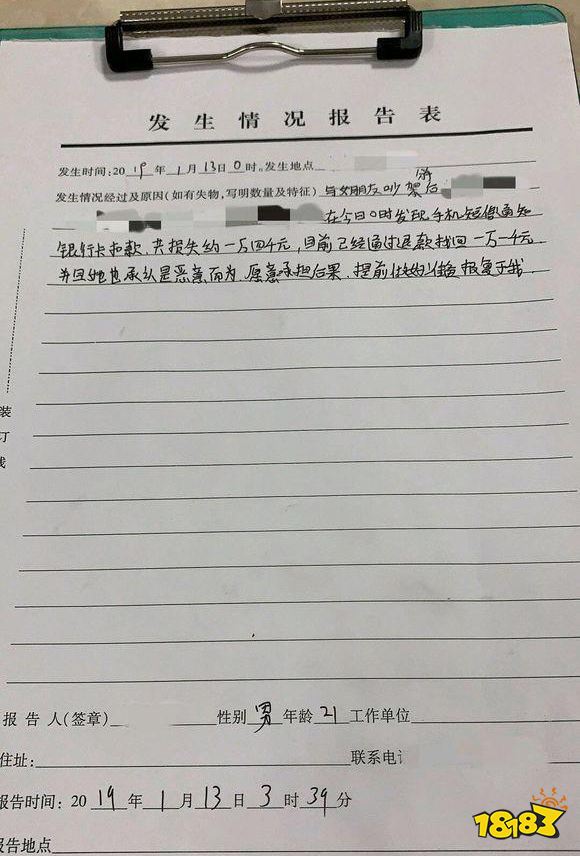 发生情况报告表
发生时间:2019年1月13日0时。发生地点
发生情况经过及原因(如有失物,写明数量及特征)与女朋友吵架后
在今日0时发现手机短信通知
银行卡扣款,共损失约一万四千元,目前已经通过退款找回一万一千元
并且她也承认是恶意而为,愿意承担后果,提前
报复于我.
装
订
线
报告人(签章) 性别 男 年龄 21 工作单位
住址: 联系电话
报告时间:2019年1月13日3时39分
报告地点
18183